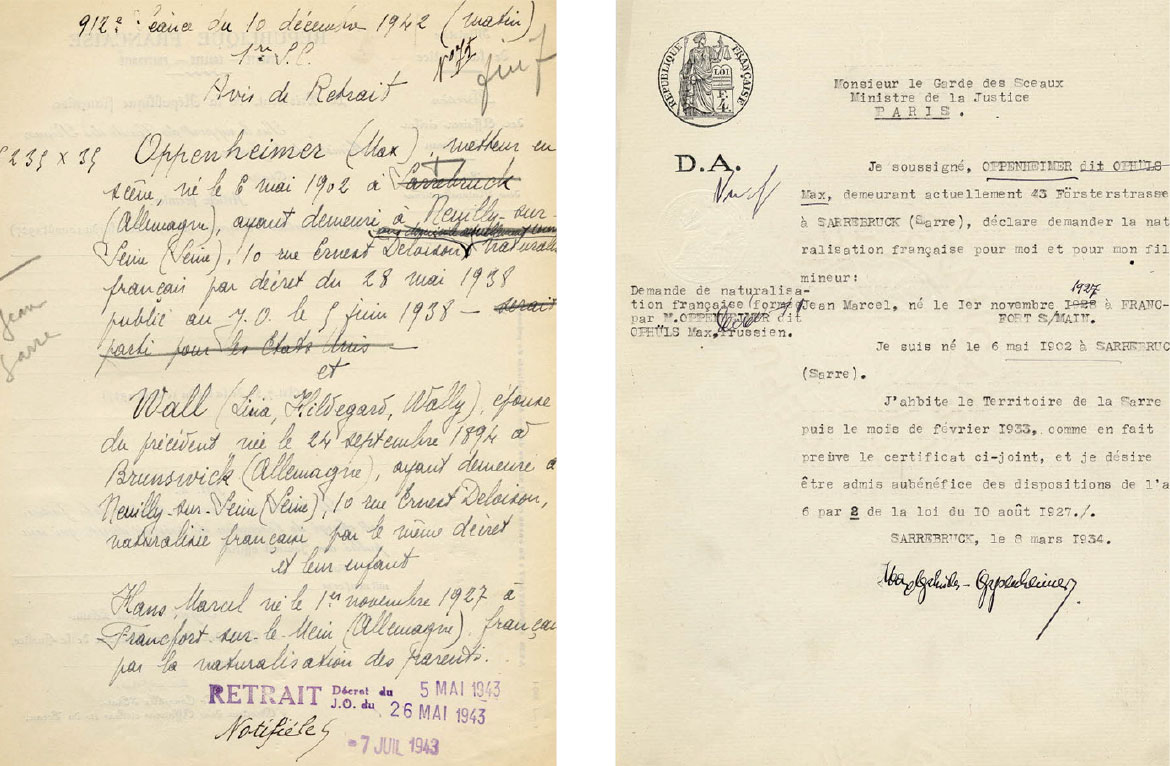 912e séance du 10 décembre 1942 (matin)
1re S.C.
juif
Avis de Retrait
239 x 39
Oppenheimer (Max), metteur en
scène, né le 6 mai 1902 à Sarrebruck
(Allemagne), ayant demeuré à Neuilly-sur-
Seine (Seine), 10 rue Ernest Deloison, naturalisé
français par décret du 28 mai 1938
publié au J.O. le 5 juin 1938 - serait
parti pour les Etats Unis
et
Jean
Sarre
Wall (Lina, Hildegard, Wally), épouse
du précédent née le 24 septembre 1894 à
Brunswick (Allemagne), ayant demeuré à
Neuilly-sur-Seine (Seine), 10 rue Ernest Deloison,
naturalisée française par le même décret
et leur enfant
Hans Marcel né le 1er novembre 1927 à
Francfort sur-le-Mein (Allemagne), français
par la naturalisation des parents.
RETRAIT Décret du 5 MAI 1943
J.O. du 26 MAI 1943
Notifié le
7 JUIL 1943
RÉPUBLIQUE FRANÇAISE
LOI
F.
4.
Monsieur le Garde des Sceaux
Ministre de la Justice
PARIS.
D.A.
Je soussigné, OPPENHEIMER dit OPHÜLS
Max, demeurant actuellement 43 Försterstrasse
à SARREBRUCK (Sarre), déclare demander la nat
ralisation française pour moi et pour mon fil
mineur:
Demande de naturalisa-
tion française formée
par M.OPPENHEIMER dit
OPHÜLS Max, Prussien.
1927
Jean Marcel, né le Ier novembre 1928 à FRANC-
FORT S/MAIN.
Je suis né le 6 mai 1902 à SARREBRUC
(Sarre).
J'ahbite le Territoire de la Sarre
puis le mois de février I933, comme en fait
preuve le certificat ci-joint, et je désire
être admis aubénéfice des dispositions de l'a
6 par 2 de la loi du IO août I927./.
SARREBRUCK, le 8 mars I934.
Max Ophüls-Oppenheimer